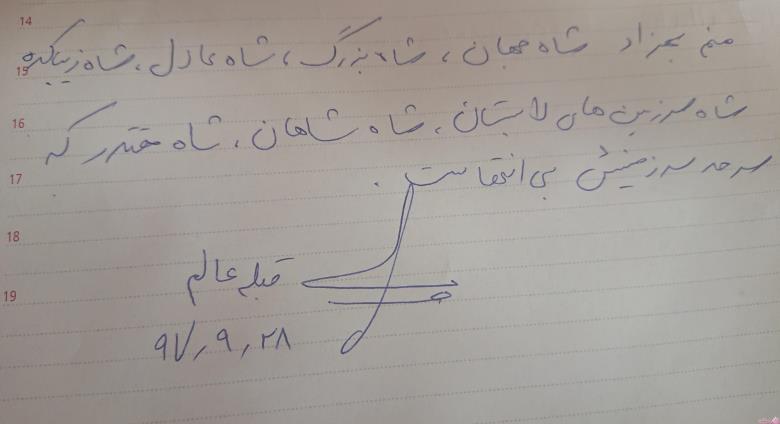 14
منم بهزاد شاه جهان، شاه بزرگ، شاه عادل، شاه زیبا که
15
شاه سرزمین های لابستان، شاه شاهان، شاه مقتدر که
16
سرحد سرزمینش بی انتهاست.
17
18
قبله عالم
19
۹۷,۹,۲۸